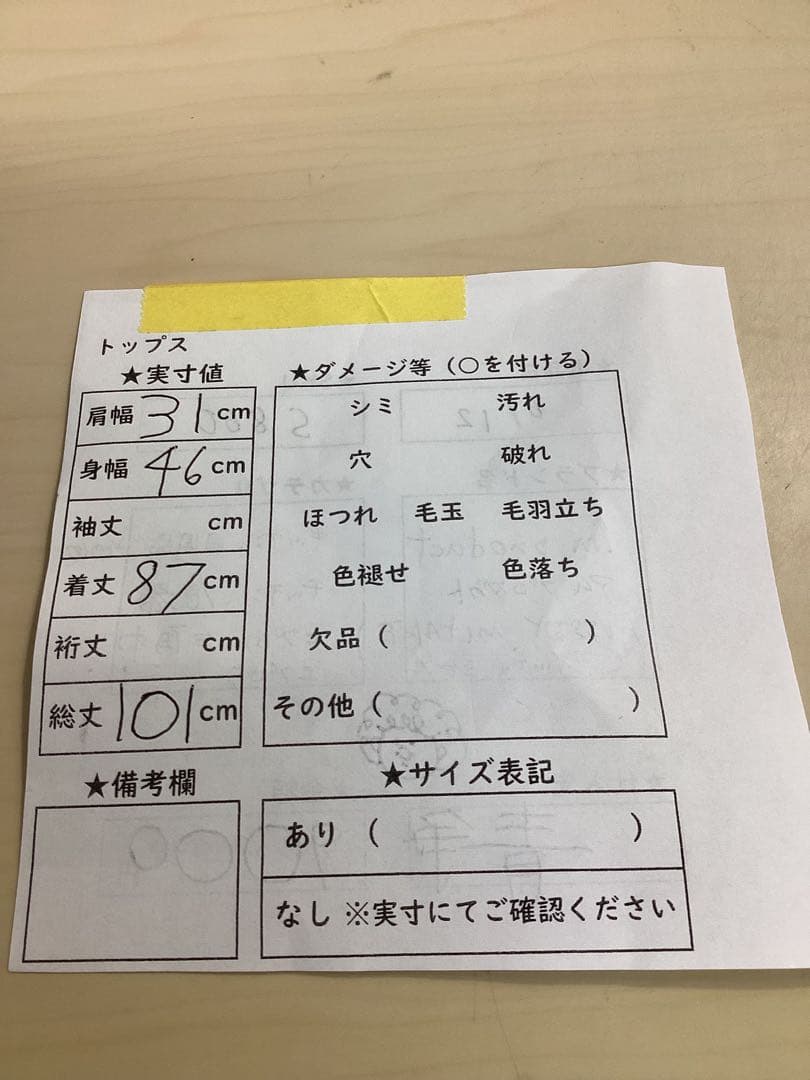 トップス
★実寸値
肩幅 31 cm
身幅 46 cm
袖丈 cm
着丈 87 cm
裄丈 cm
総丈 101 cm
★備考欄
★ダメージ等（○を付ける）
シミ 汚れ
穴 破れ
ほつれ 毛玉 毛羽立ち
色褪せ 色落ち
欠品（ ）
その他（ ）
★サイズ表記
あり（ ）
なし ※実寸にてご確認ください